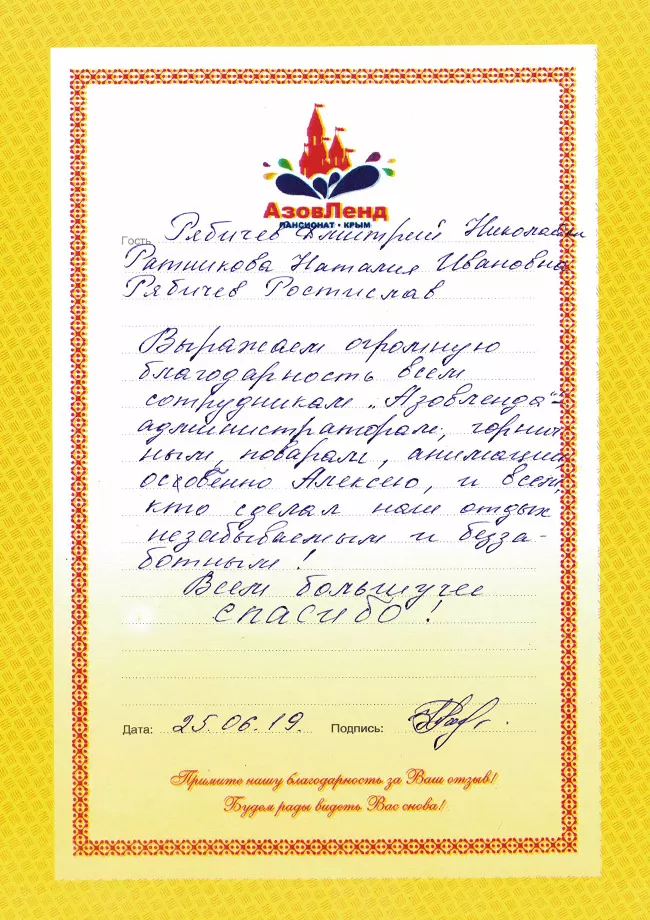 АзовЛенд
ПАНСИОНАТ • КРЫМ
Гость Рябичев Дмитрий Николаевич
Ратникова Наталия Ивановна
Рябичев Ростислав
Выражаем огромную
благодарность всем
сотрудникам „Азовленда"-
администраторам, горнич
ным, поварам, анимации,
особенно Алексею, и всем,
кто сделал наш отдых
незабываемым и безза-
ботным!
Всем большущее
спасибо!
Дата: 25.06.19. Подпись:
Примите нашу благодарность за Ваш отзыв!
Будем рады видеть Вас снова!